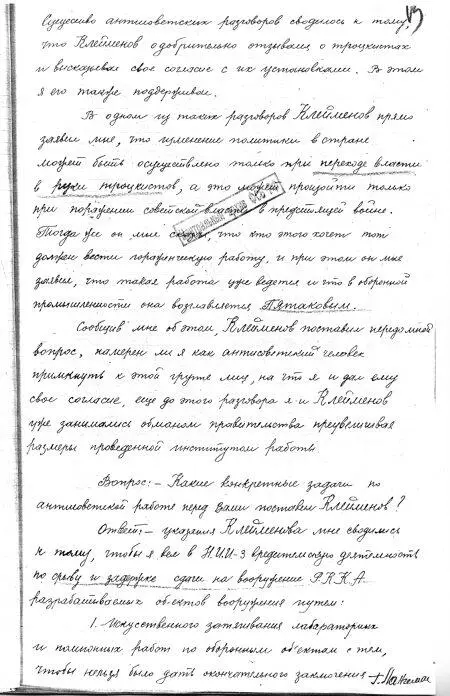 13
Существо антисоветских разговоров сводилось к тому,
что Клейменов одобрительно отзывался о троцкистах
и высказывал свое согласие с их установками. В этом
я его также поддерживал.
В одном из таких разговоров Клейменов прямо
заявил мне, что изменение политики в стране
может быть осуществлено только при переходе власти
в руки троцкистов, а это может произойти только
при поражении советской власти в предстоящей войне.
Тогда же он мне сказал, что кто этого хочет тот
должен вести пораженческую работу, и при этом он мне
заявил, что такая работа уже ведется и что в оборонной
промышленности она возглавляется Пятаковым.
Сообщив мне об этом, Клейменов поставил передо мной
вопрос, намерен ли я как антисоветский человек
примкнуть к этой группе лиц, на что я и дал ему
свое согласие, еще до этого разговора я и Клейменов
уже занимались обманом правительства преувеличивая
размеры проведенной институтом работы
Вопрос: – Какие конкретные задачи по
антисоветской работе перед Вами поставил Клейменов?
Ответ: – указания Клейменова мне сводились
к тому, чтобы я вел в Н.И.И-3 вредительскую деятельность
по срыву и задержке сдачи на вооружение Р.К.К.А.
разрабатываемых объектов вооружения путем:
1. Искусственного затягивания лабараторных
и полигонных работ по оборонным объектам с тем,
чтобы нельзя было дать окончательного заключения